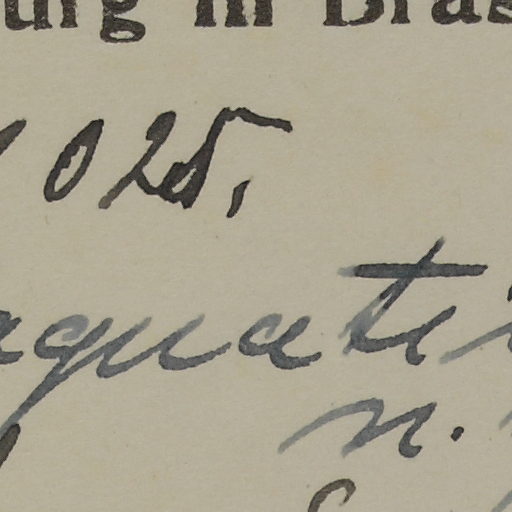 urg in Bras
025.
aquati
n.